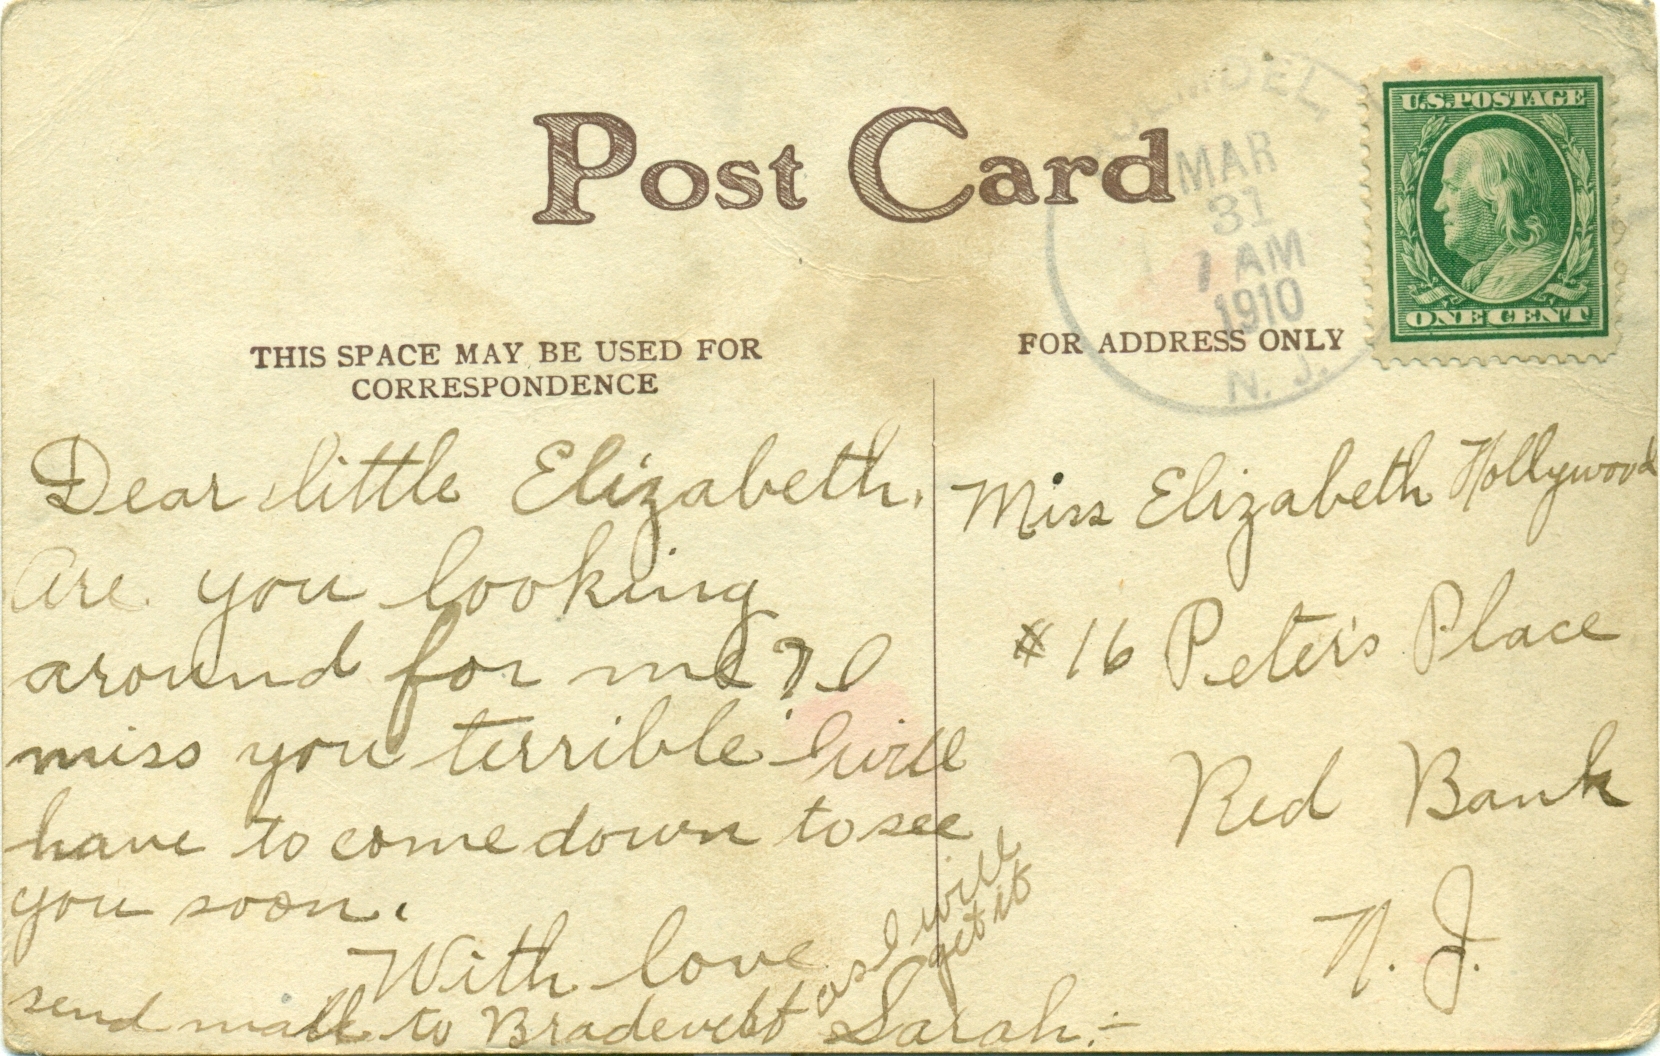 Post Card
MAR
31
1 AM
1910
N. J.
U.S. POSTAGE
ONE CENT
THIS SPACE MAY BE USED FOR
CORRESPONDENCE
FOR ADDRESS ONLY
Dear little Elizabeth.
Are you looking
around for me? I
miss you terrible I will
have to come down to see
you soon.
With love
Sarah.-
send mail to Bradevelt
as I will
get it
Miss Elizabeth Hollywood
#16 Peter's Place
Red Bank
N. J.